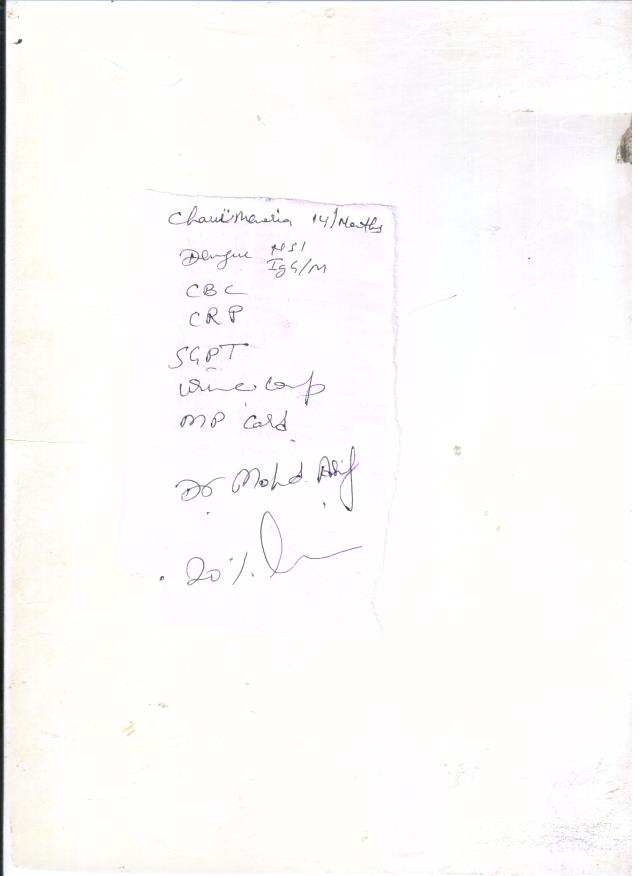 14/Months
Dengue NS1
IgG/M
CBC
CRP
SGPT
urine comp
MP Card
Dr Mohd Asif
20%.